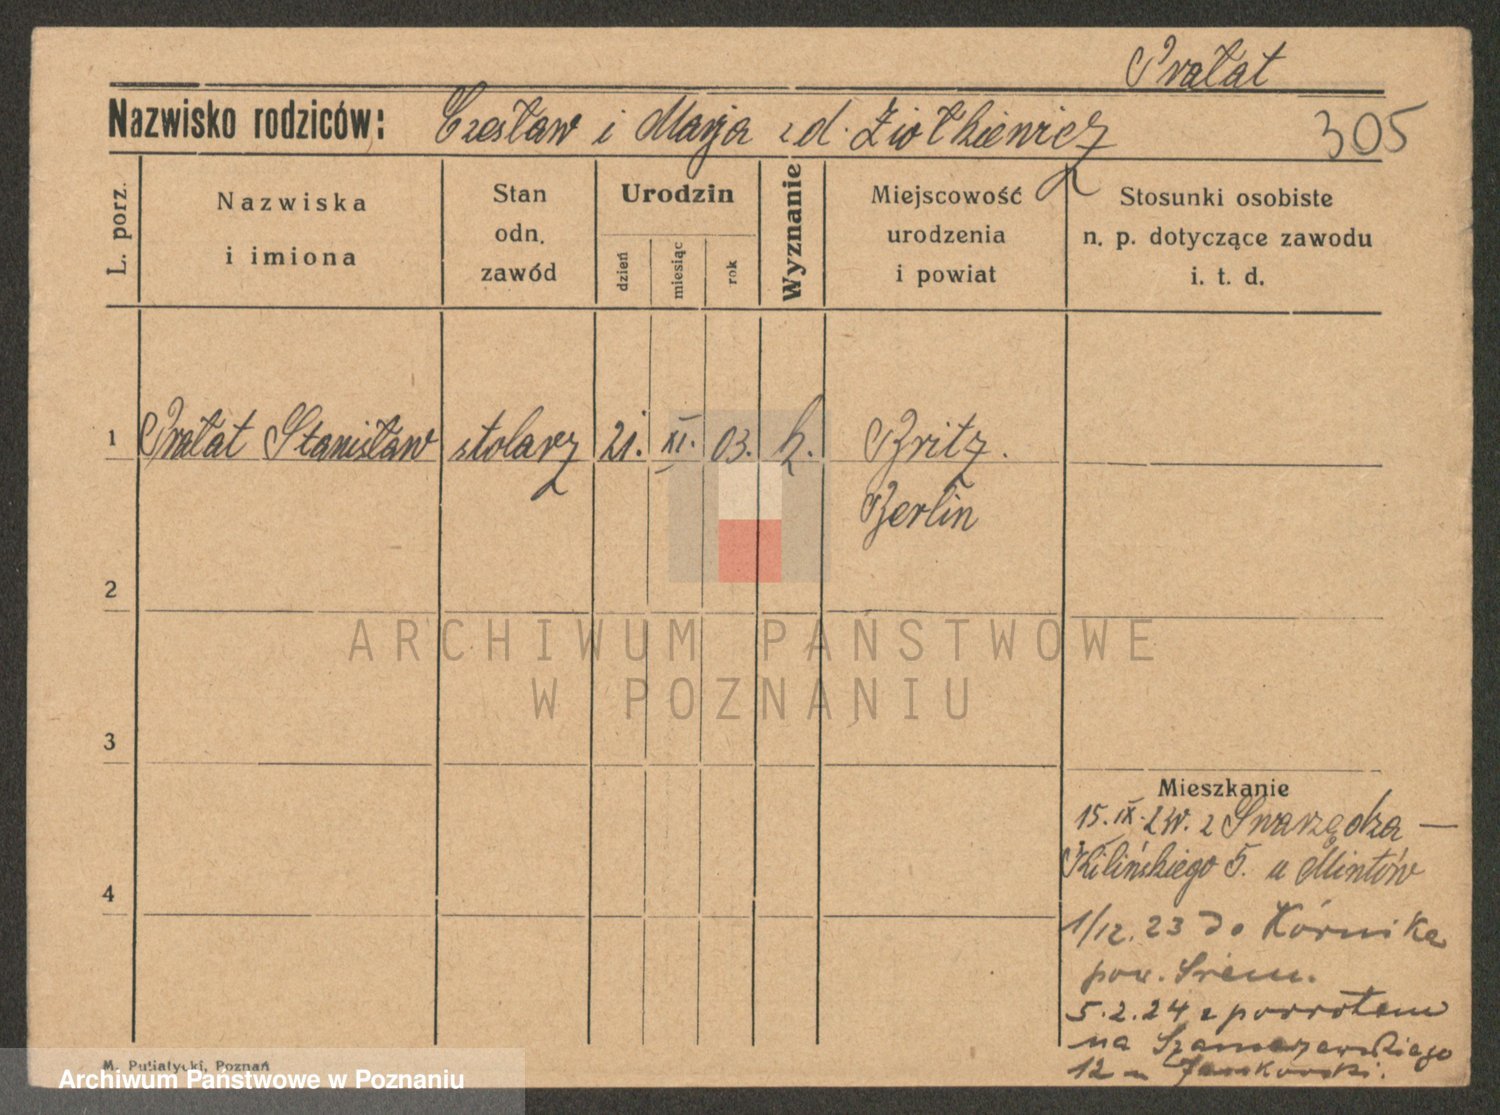 Prałat
Nazwisko rodziców: Czesław i Marja zd. Ziółkiewicz
305
L. porz.
Nazwiska
i imiona
Stan
odn.
zawód
Urodzin
dzień
miesiąc
rok
Wyznanie
Miejscowość
urodzenia
i powiat
Stosunki osobiste
n. p. dotyczące zawodu
i. t. d.
1 Prałat Stanisław stolarz 21. XI. 03. k. Britz.
Berlin
2
3
4
Mieszkanie
15. IX. z Swarzędza —
Kilińskiego 5. u Mintów
1/12. 23 do Kórnika
pow. Śrem.
5.2.24 z powrotem
na Szamarzewskiego
12 u Jankowski.
M. Putiatycki, Poznań
ARCHIWUM PAŃSTWOWE
W POZNANIU
Archiwum Państwowe w Poznaniu